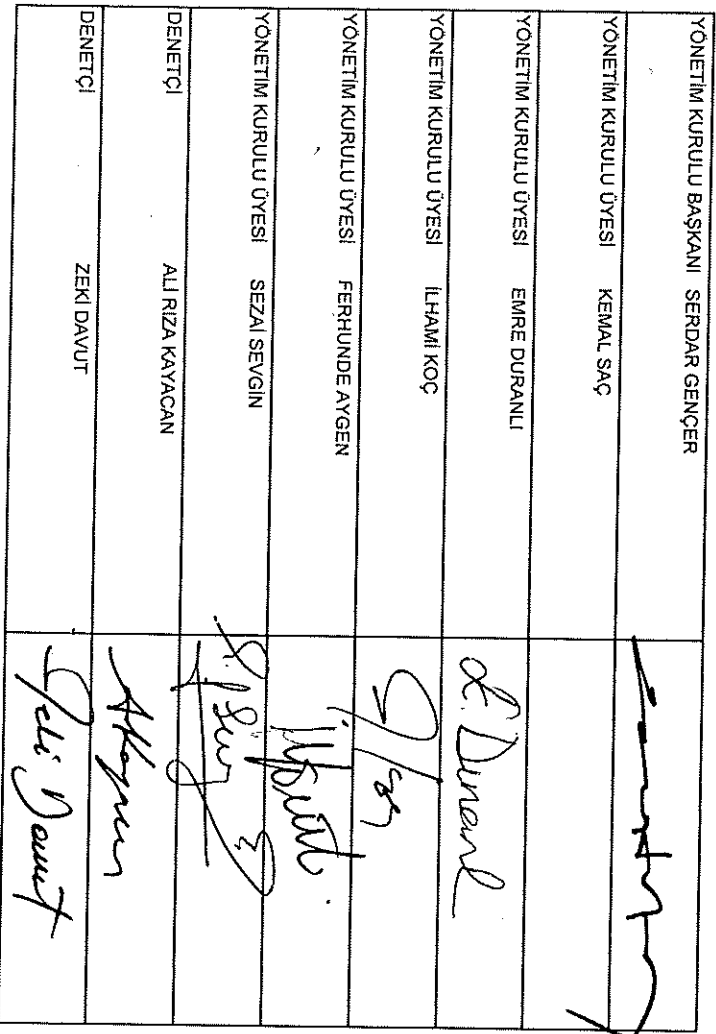 YÖNETİM KURULU BAŞKANI SERDAR GENÇER
YÖNETİM KURULU ÜYESİ KEMAL SAÇ
YÖNETİM KURULU ÜYESİ EMRE DURANLI
YÖNETİM KURULU ÜYESİ İLHAMİ KOÇ
YÖNETİM KURULU ÜYESİ FERHUNDE AYGEN
YÖNETİM KURULU ÜYESİ SEZAİ SEVGİN
DENETÇİ ALİ RIZA KAYACAN
DENETÇİ ZEKİ DAVUT